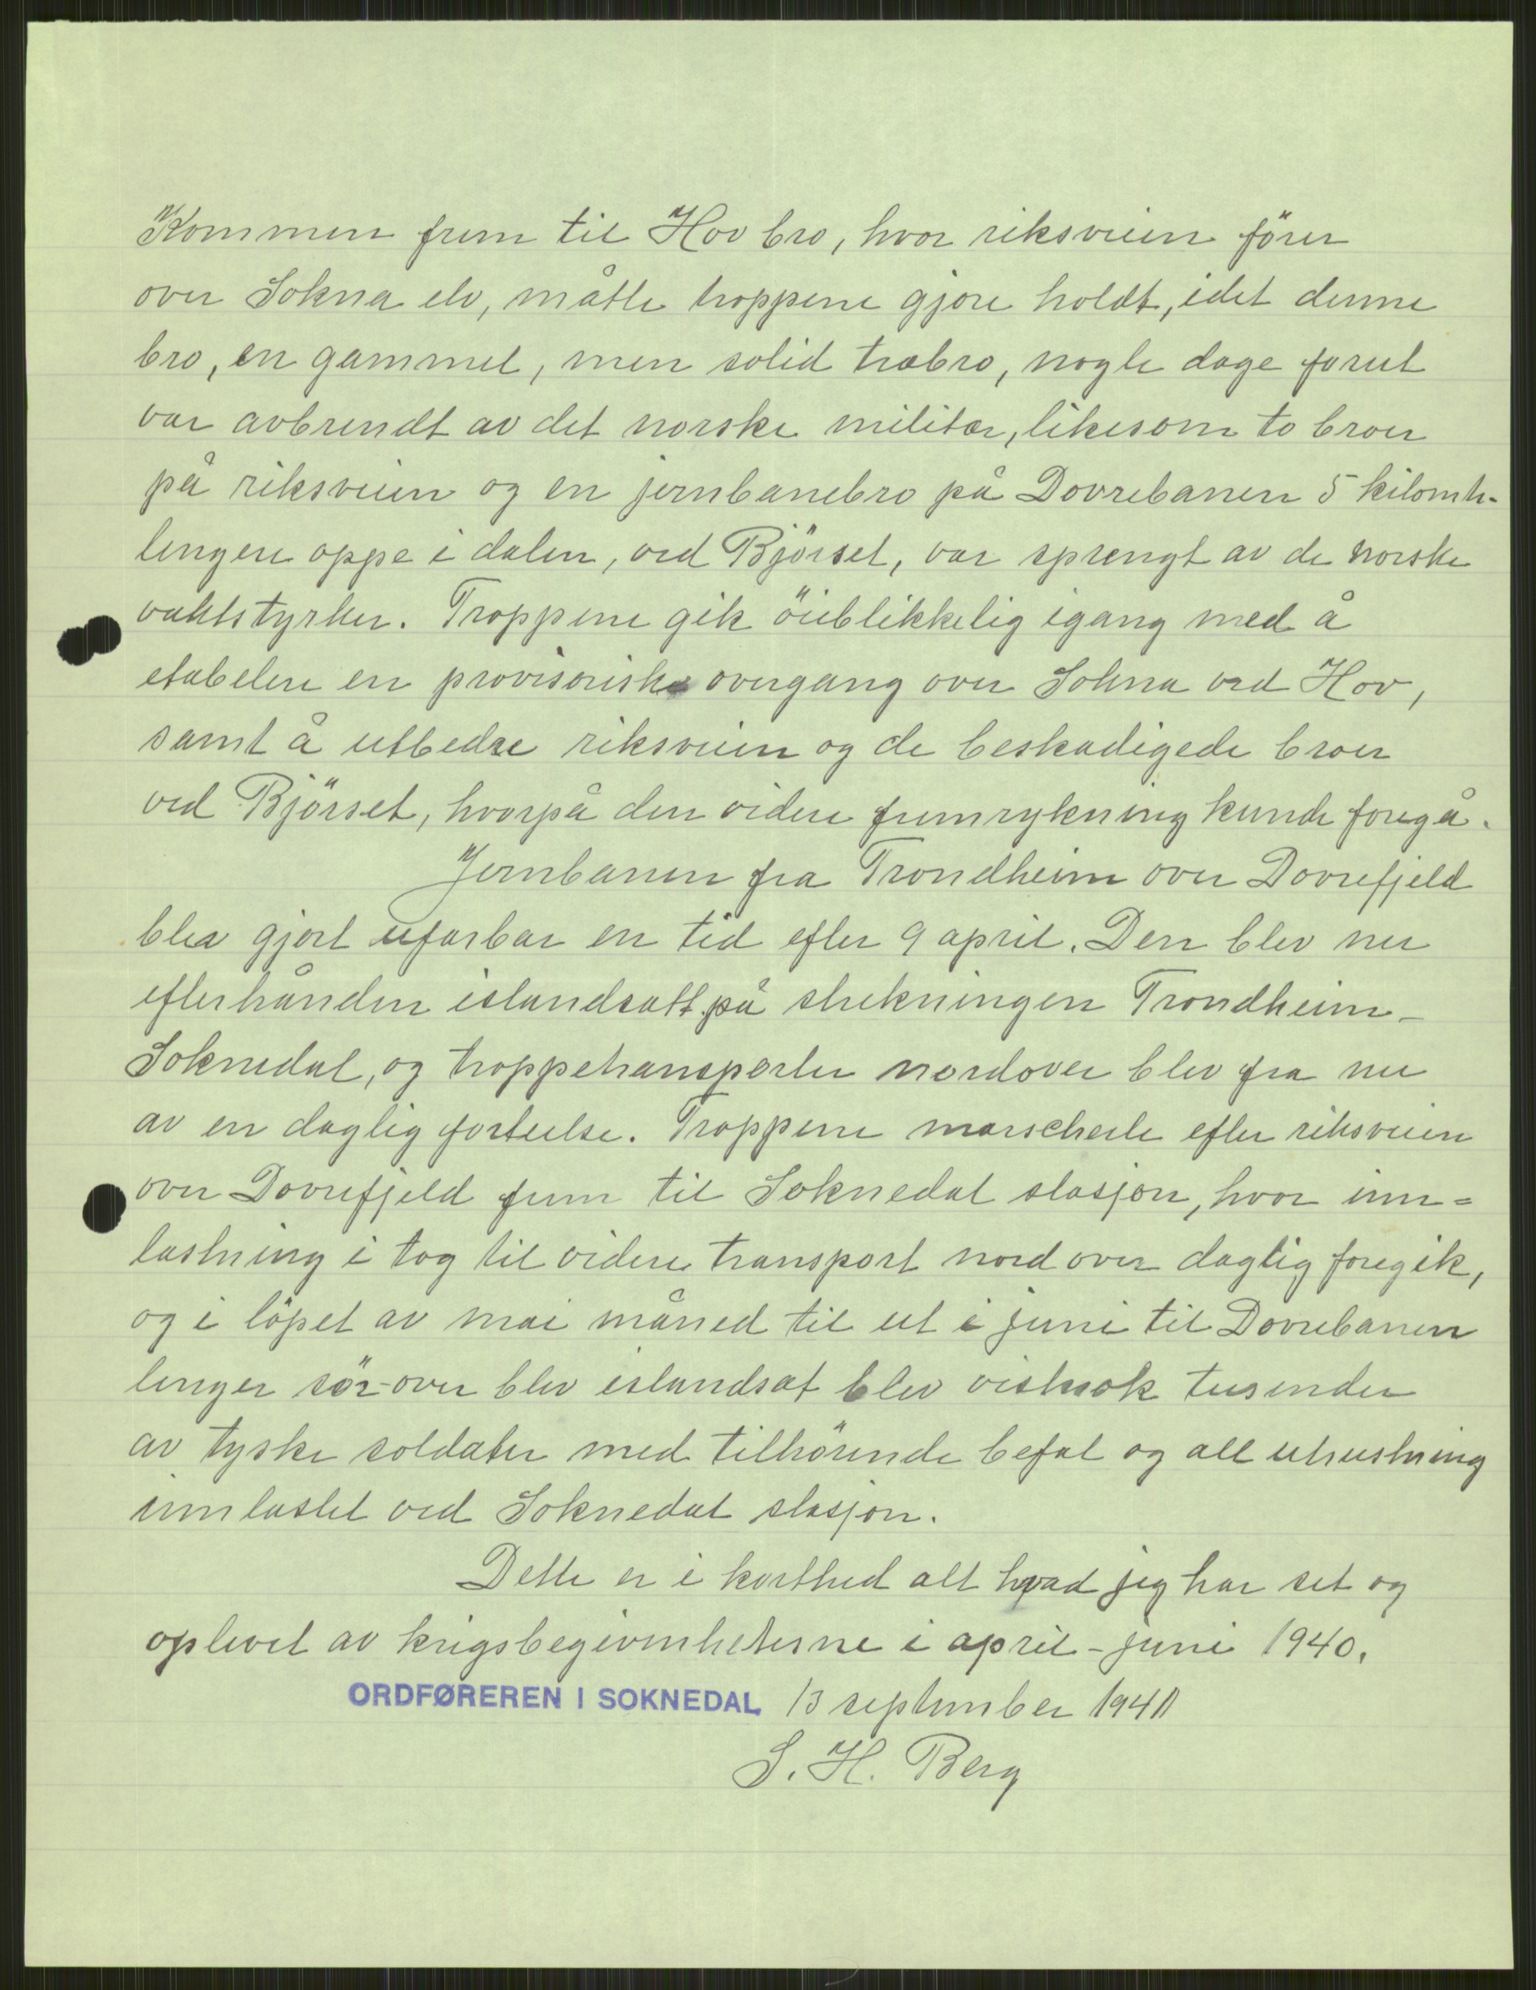 Kommen frem til Hov bro, hvor riksveien fører
over Sokna elv, måtte troppene gjøre holdt, idet denne
bro, en gammel, men solid træbro, nogle dage forut
var avbrendt av det norske militær, likesom to broer
på riksveien og en jernbanebro på Dovrebanen 5 kilomtr.
lengere oppe i dalen, ved Bjørset, var sprengt av de norske
vaktstyrker. Troppene gik öieblikkelig igang med å
etabelere en provisorisk overgang over Sokna ved Hov,
samt å utbedre riksveien og de beskadigede broer
ved Björset, hvorpå den videre fremrykning kunde foregå.
Jernbanen fra Trondheim over Dovrefjeld
blev gjort ufarbar en tid efter 9 april. Den blev nu
efterhånden istandsatt på strekningen Trondheim-
Soknedal, og troppetransporter nordover blev fra nu
av en daglig forteelse. Troppene marscherte efter riksveien
over Dovrefjeld frem til Soknedal stasjon, hvor inn=
lastning i tog til videre transport nordover daglig foregik,
og i löpet av mai måned til ut i juni til Dovrebanen
lenger sör-over blev istandsat blev visnok tusender
av tyske soldater med tilhörende befal og all utrustning
innlastet ved Soknedal stasjon.
Dette er i korthed alt hvad jeg har set og
oplevet av krigsbegivenheterne i april-juni 1940.
ORDFØREREN I SOKNEDAL 13 september 1941
S. H. Berg